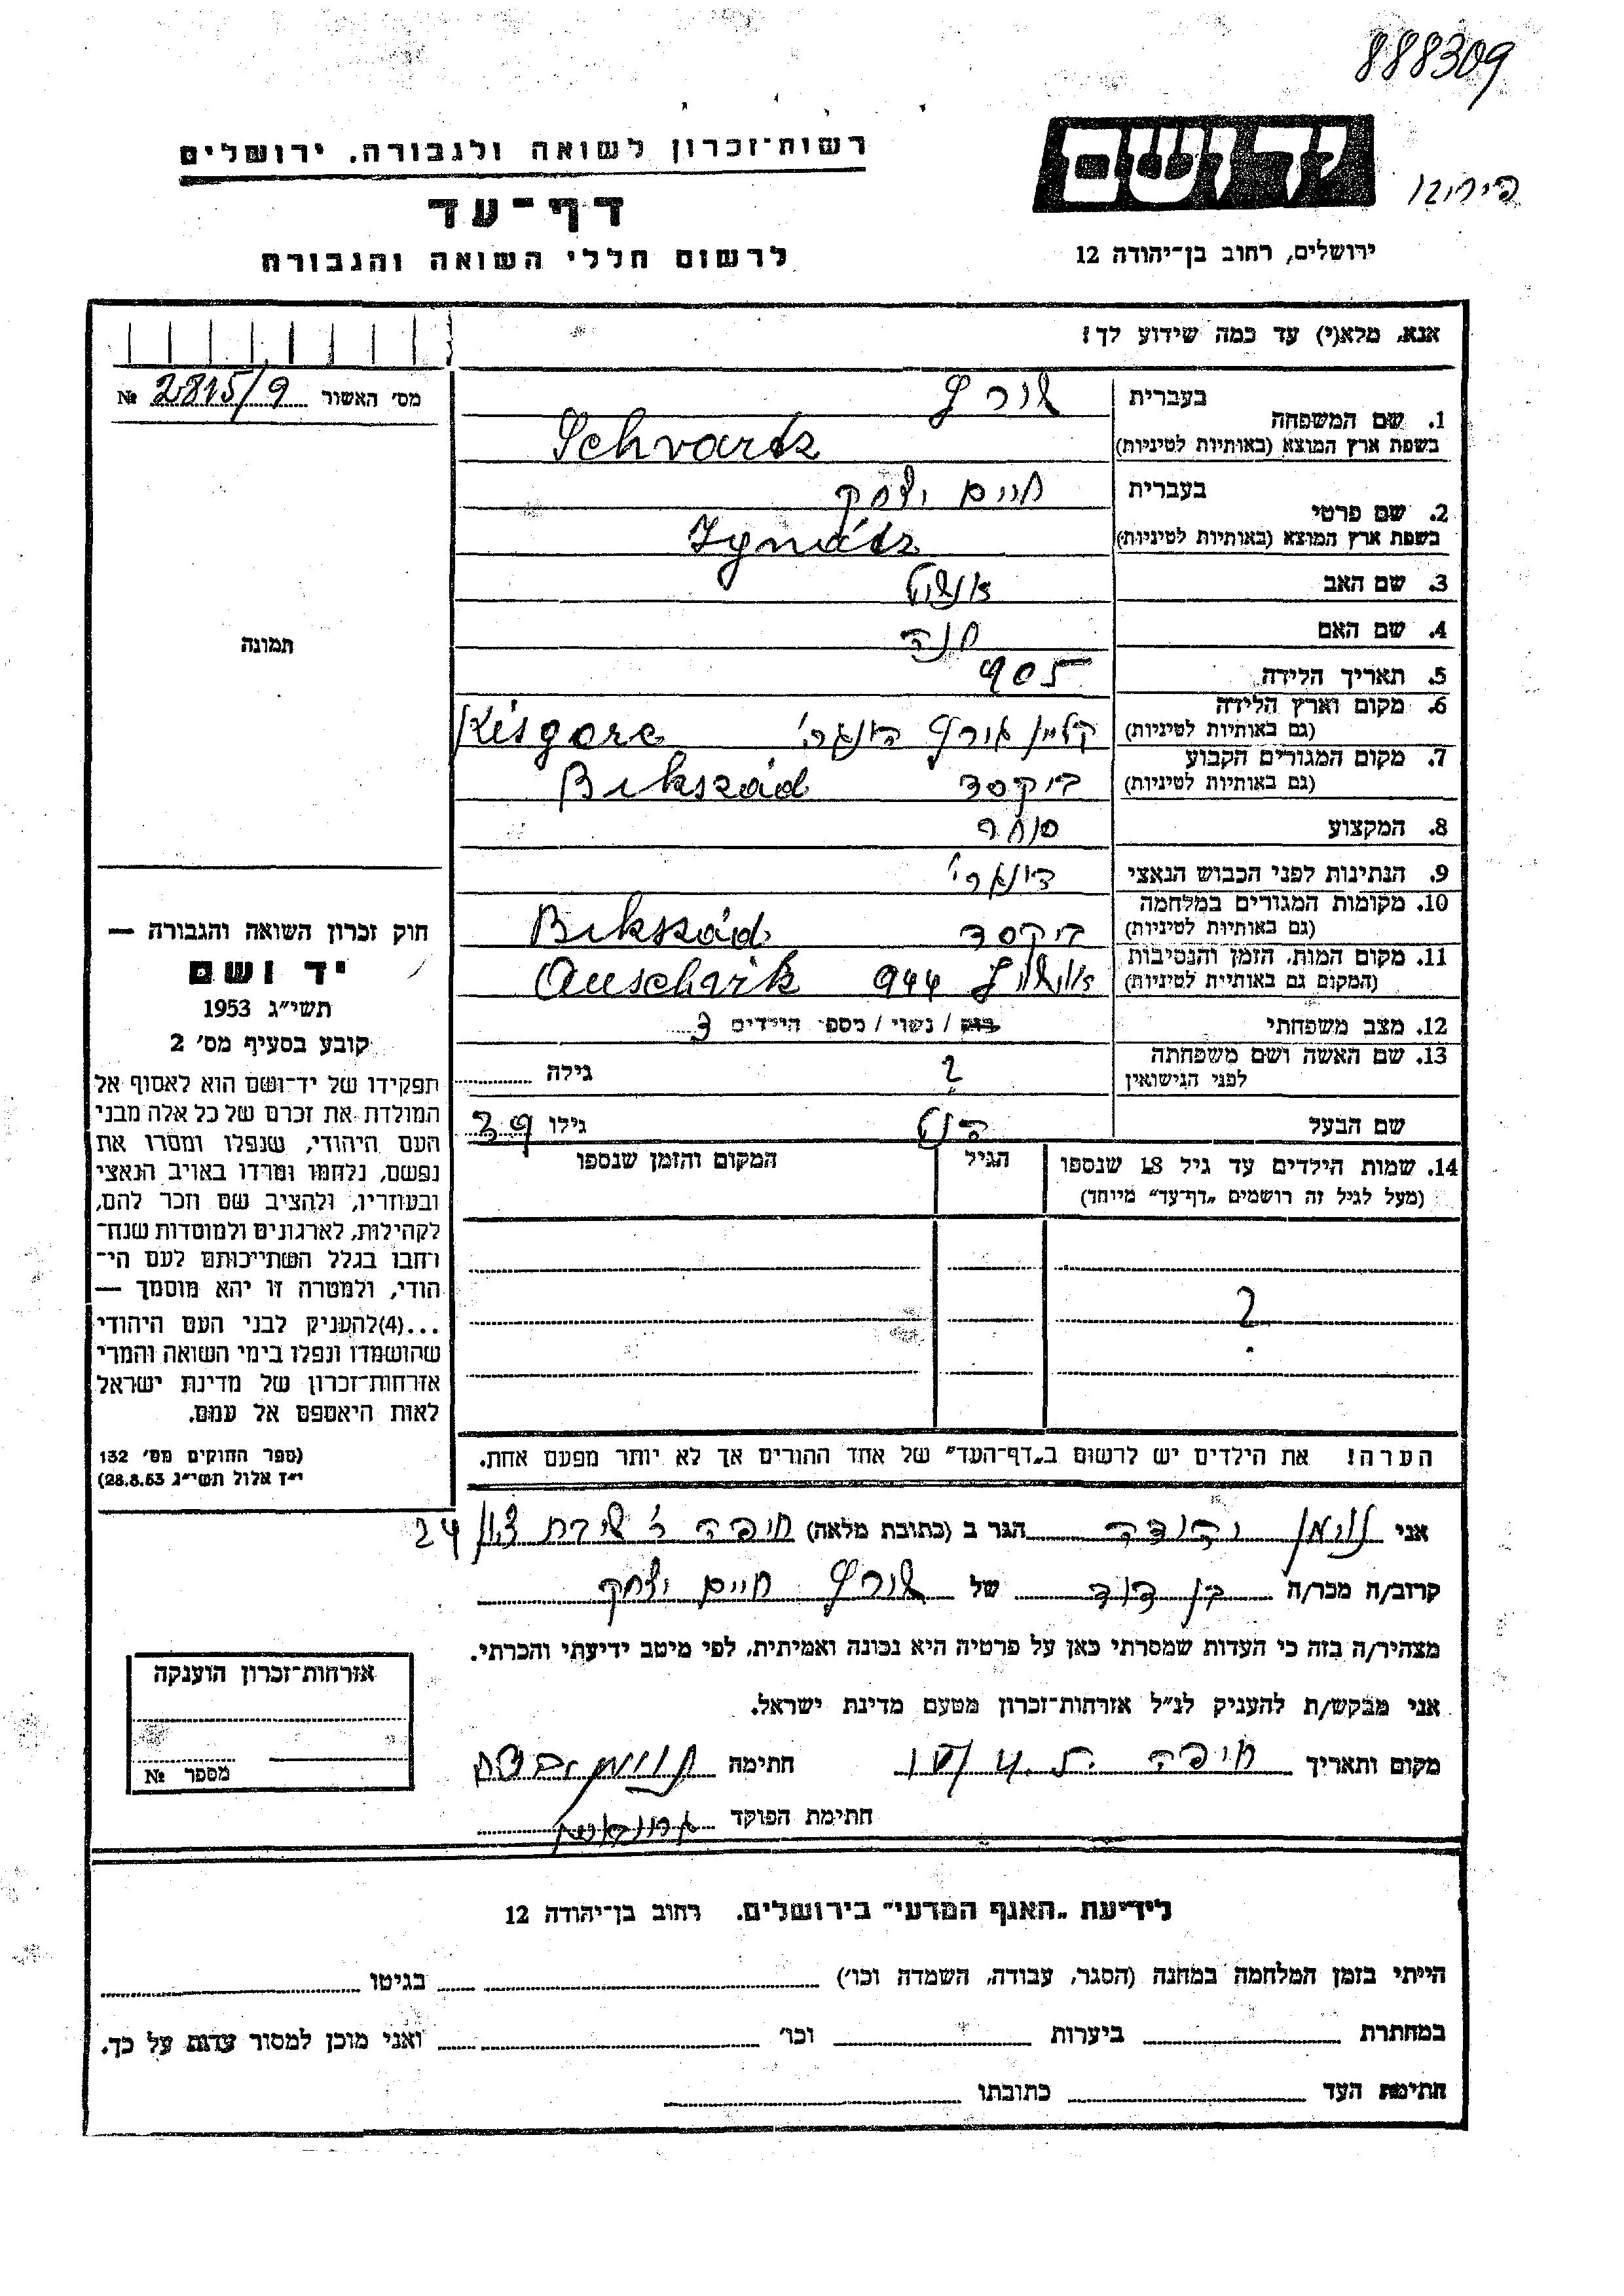 888309
רשות־זכרון לשואה ולגבורה, ירושלים
יד ושם
דף־עד
לרשום חללי השואה והגבורה
ירושלים, רחוב בן־יהודה 12
אנא, מלא(י) עד כמה שידוע לך!
מס' האשור № 2815/9
1. שם המשפחה בעברית שורץ
בשפת ארץ המוצא (באותיות לטיניות) Schvartz
2. שם פרטי בעברית חיים יצחק
בשפת ארץ המוצא (באותיות לטיניות) Ignátz
3. שם האב אנשיל
4. שם האם חנה
5. תאריך הלידה 905
6. מקום וארץ הלידה
(גם באותיות לטיניות) Kisgore
7. מקום המגורים הקבוע
(גם באותיות לטיניות) ביקסד Bikszád
8. המקצוע סוחר
9. הנתינות לפני הכבוש הנאצי
10. מקומות המגורים במלחמה
(גם באותיות לטיניות) ביקסד Bikszád
11. מקום המות, הזמן והנסיבות
(המקום גם באותיות לטיניות) 944
12. מצב משפחתי רוק / נשוי / מספר הילדים 3
13. שם האשה ושם משפחתה
לפני הנישואין ? גילה
שם הבעל גילו 39
14. שמות הילדים עד גיל 18 שנספו הגיל המקום והזמן שנספו
(מעל לגיל זה רושמים „דף־עד" מיוחד)
?
הערה! את הילדים יש לרשום ב„דף־העד" של אחד ההורים אך לא יותר מפעם אחת.
תמונה
חוק זכרון השואה והגבורה —
יד ושם
תשי"ג 1953
קובע בסעיף מס' 2
תפקידו של יד־ושם הוא לאסוף אל
המולדת את זכרם של כל אלה מבני
העם היהודי, שנפלו ומסרו את
נפשם, נלחמו ומרדו באויב הנאצי
ובעוזריו, ולהציב שם וזכר להם,
לקהילות, לארגונים ולמוסדות שנח־
רבו בגלל השתייכותם לעם הי־
הודי, ולמטרה זו יהא מוסמך —
...(4)להעניק לבני העם היהודי
שהושמדו ונפלו בימי השואה והמרי
אזרחות־זכרון של מדינת ישראל
לאות היאספם אל עמם.
(ספר החוקים מס' 132
י"ז אלול תשי"ג 28.8.53)
אני נוימן יהודה הגר ב (כתובת מלאה) חיפה 24
קרוב/ה מכר/ה בן דוד של שורץ חיים יצחק
מצהיר/ה בזה כי העדות שמסרתי כאן על פרטיה היא נכונה ואמיתית, לפי מיטב ידיעתי והכרתי.
אני מבקש/ת להעניק לנ"ל אזרחות־זכרון מטעם מדינת ישראל.
מקום ותאריך חיפה חתימה
חתימת הפוקד
אזרחות־זכרון הוענקה
מספר №
לידיעת „האגף המדעי" בירושלים, רחוב בן־יהודה 12
הייתי בזמן המלחמה במחנה (הסגר, עבודה, השמדה וכו') בגיטו
במחתרת ביערות וכו' ואני מוכן למסור עדות על כך.
חתימת העד כתובתו